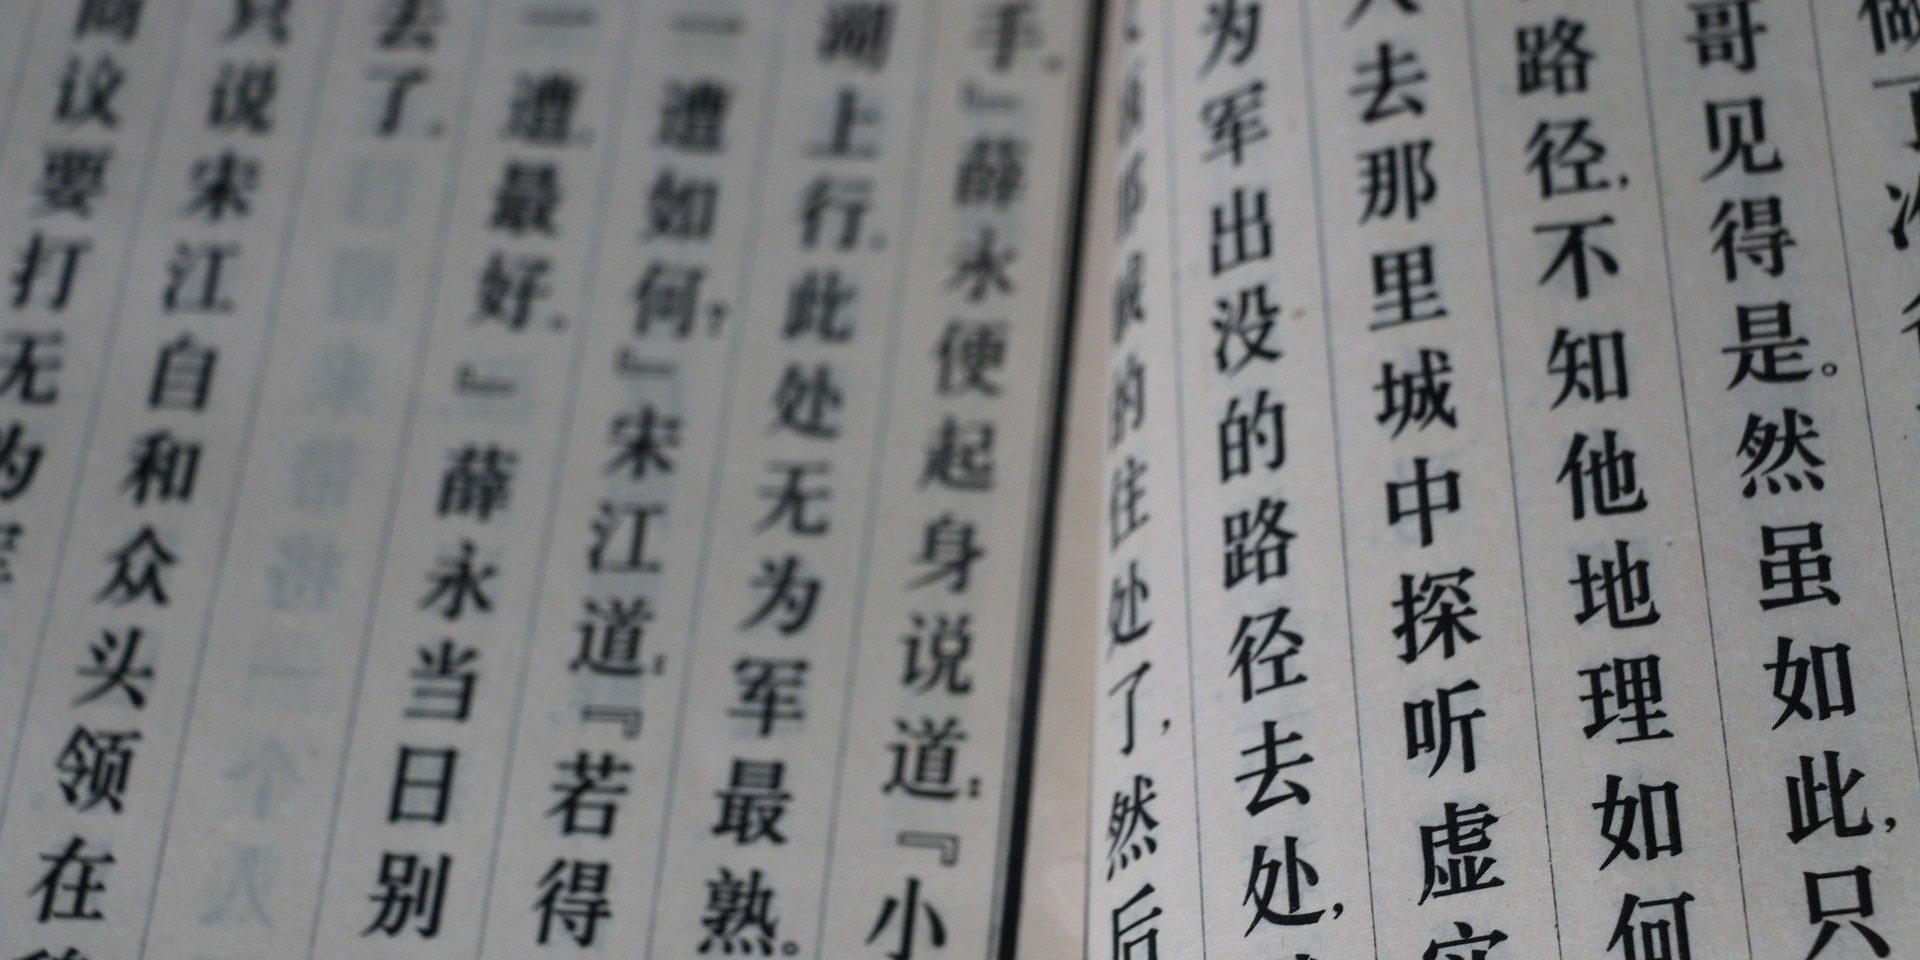 哥见得是。然虽如此,只
路径,不知他地理如何
去那里城中探听虚实
为军出没的路径去处,
的住处了,然后
手。』薛永便起身说道:『小
湖上行。此处无为军最熟。
一遭如何?』宋江道:『若得
一遭,最好。』薛永当日别
去了。
只说宋江自和众头领在
商议要打无为军